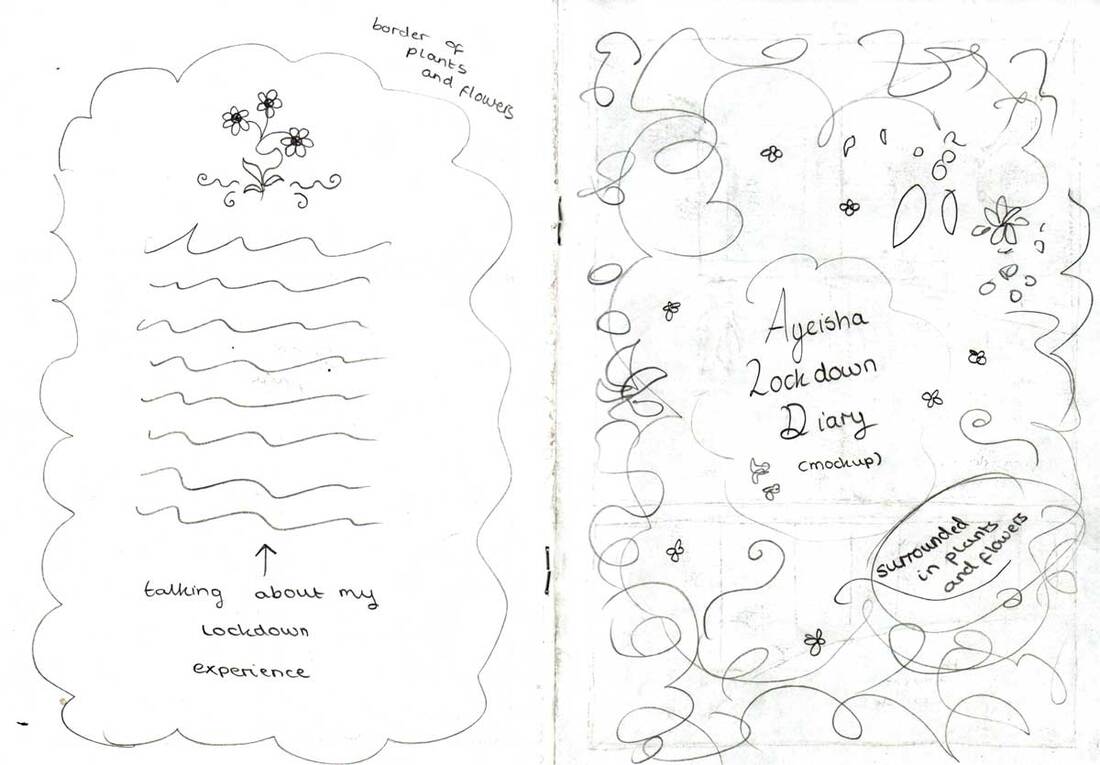 border of
plants
and flowers
talking about my
Lockdown
experience
Ayeisha
Lockdown
Diary
(mockup)
surrounded
in plants
and flowers